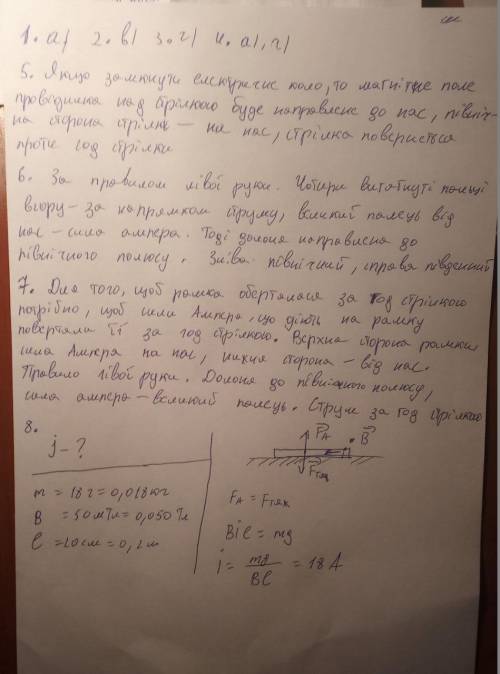 1. а) 2. в) 3. г) 4. а), г)
5. Якщо замкнути електричне коло, то магнітне поле
провідника над стрілкою буде направлене до нас, північ-
на сторона стрілки — на нас, стрілка повернеться
проти год стрілки
6. За правилом лівої руки. Чотири витягнуті пальці
вгору – за напрямком струму, великий палець від
нас – сила ампера. Тоді долоня направлена до
північного полюсу. Зліва північний, справа південний
7. Для того, щоб рамка оберталася за год стрілкою
потрібно, щоб сили Ампера, що діють на рамку
повертали її за год стрілкою. Верхня сторона рамки
сила Ампера на нас, нижня сторона – від нас.
Правило лівої руки. Долоня до північного полюсу,
сила ампера – великий палець. Струм за год стрілкою
8.
j - ?
m = 18 г = 0,018 кг
B = 50 мТл = 0,050 Тл
l = 20 см = 0,2 м
FА
B
Fтяж
FА = Fтяж
Bil = mg
i = mg / Bl = 18 А